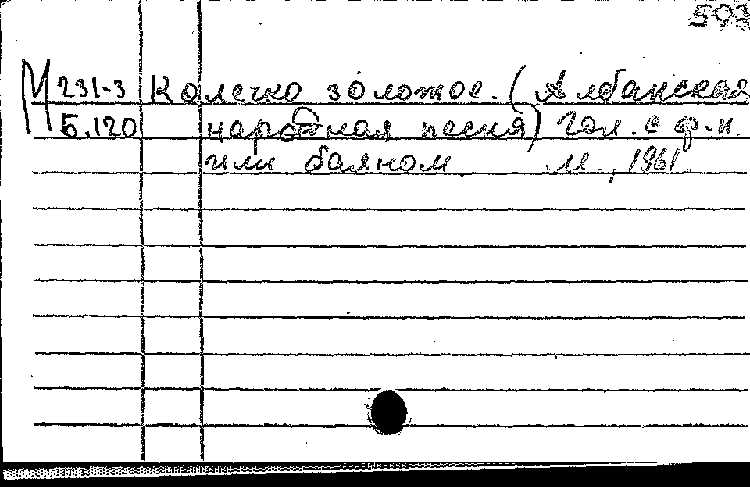 593
М 231-3 Колечко золотое. (Албанская
Б.120 народная песня) Гол. с ф.-п.
или баяном. М., 1961.